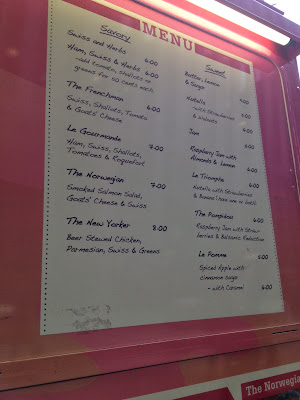 MENU
Savory
Swiss and Herbs 6.00
Ham, Swiss & Herbs 6.00
-add tomato, shallots or
greens for 50 cents each
The Frenchman 6.00
Swiss, Shallots, Tomato
& Goats' Cheese
Le Gourmande 7.00
Ham, Swiss, Shallots,
Tomatoes & Roquefort
The Norwegian 7.00
Smoked Salmon Salad,
Goats' Cheese & Swiss
The New Yorker 8.00
Beer Stewed Chicken,
Parmesian, Swiss & Greens
Sweet
Butter, Lemon
& Sugar
Nutella 5.00
- with Strawberries
& Walnuts 6.00
Jam
Raspberry Jam with
Almonds & Lemon
Le Triomphe 6.00
Nutella with Strawberries
& Banana (have one or both)
The Pompidou 6.00
Raspberry Jam with Straw-
berries & Balsamic Reduction
La Pomme 5.00
Spiced Apple with
cinnamon sugar
- with Caramel 6.00
The Norwegia